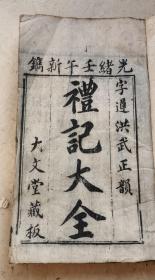 光緒壬午新鐫
字遵洪武正韻
禮記大全
大文堂藏板